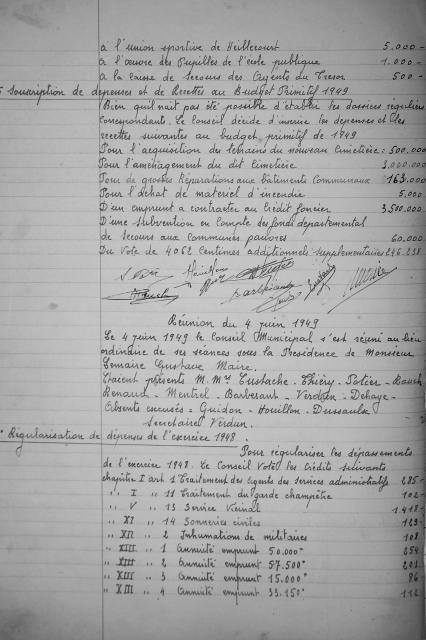 à l'union sportive de Heillecourt 5.000 -
à l'œuvre des Pupilles de l'école publique 1.000 -
à la caisse de Secours des Agents du Trésor 500 -
Souscription de dépenses et de Recettes au Budget Primitif 1949
Bien qu'il n'ait pas été possible d'établir les dossiers réguliers
correspondants. Le Conseil décide d'inscrire les dépenses et les
recettes suivantes au budget primitif de 1949
Pour l'acquisition des terrains du nouveau Cimetière : 500.000
Pour l'aménagement du dit Cimetière 3.000.000
Pour de grosses Réparations aux bâtiments Communaux 163.000
Pour l'achat de matériel d'incendie 5.000
D'un emprunt à contracter au Crédit foncier 3.500.000
D'une Subvention en Compte des fonds départemental
de Secours aux Communes pauvres 60.000
Du Vote de 4062 Centimes additionnels supplémentaires 246.238
Réunion du 4 juin 1949
Le 4 juin 1949 le Conseil Municipal s'est réuni au lieu
ordinaire de ses séances sous la Présidence de Monsieur
Lemaire Gustave Maire.
Etaient présents M. Mrs Eustache - Thiéry - Potier - Bauch
Renaud - Mentrel - Barbesant - Verdun - Dehaye -
Absents excusés = Guidon - Houillon - Dussaulx
Secrétaire Verdun.
Régularisation de dépenses de l'exercice 1948.
Pour régulariser les dépassements
de l'exercice 1948. Le Conseil Vote les Crédits suivants
chapitre I art 1 Traitement des Agents des services administratifs 285 -
" I " 11 Traitement du garde champêtre 102 -
" V " 13 Service Vicinal 1418 -
" XI " 14 Sonneries civiles 123 -
" XII " 2 Inhumations de militaires 108
" XIII " 1 Annuité emprunt 50.000" 254
" XIII " 2 Annuité emprunt 57.500" 201
" XIII " 3 Annuité emprunt 15.000" 86 -
" XIII " 4 Annuité emprunt 33.150" 112